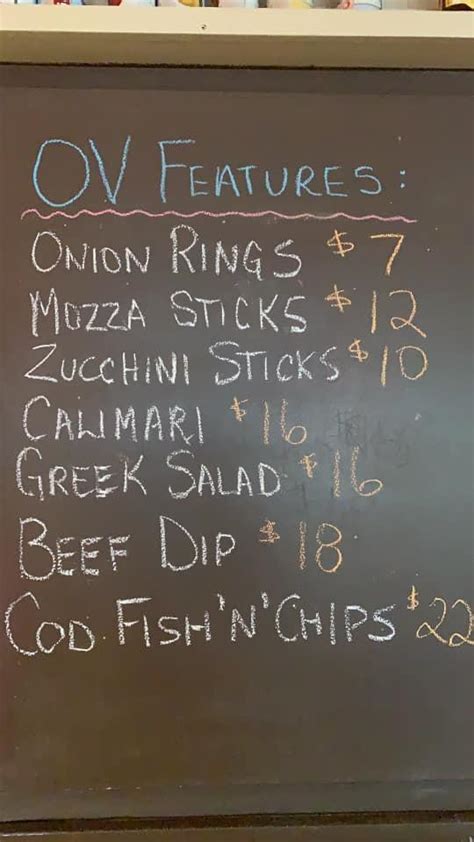 OV FEATURES:
ONION RINGS $7
MOZZA STICKS $12
ZUCCHINI STICKS $10
CALIMARI $16
GREEK SALAD $16
BEEF DIP $18
COD FISH'N'CHIPS $22